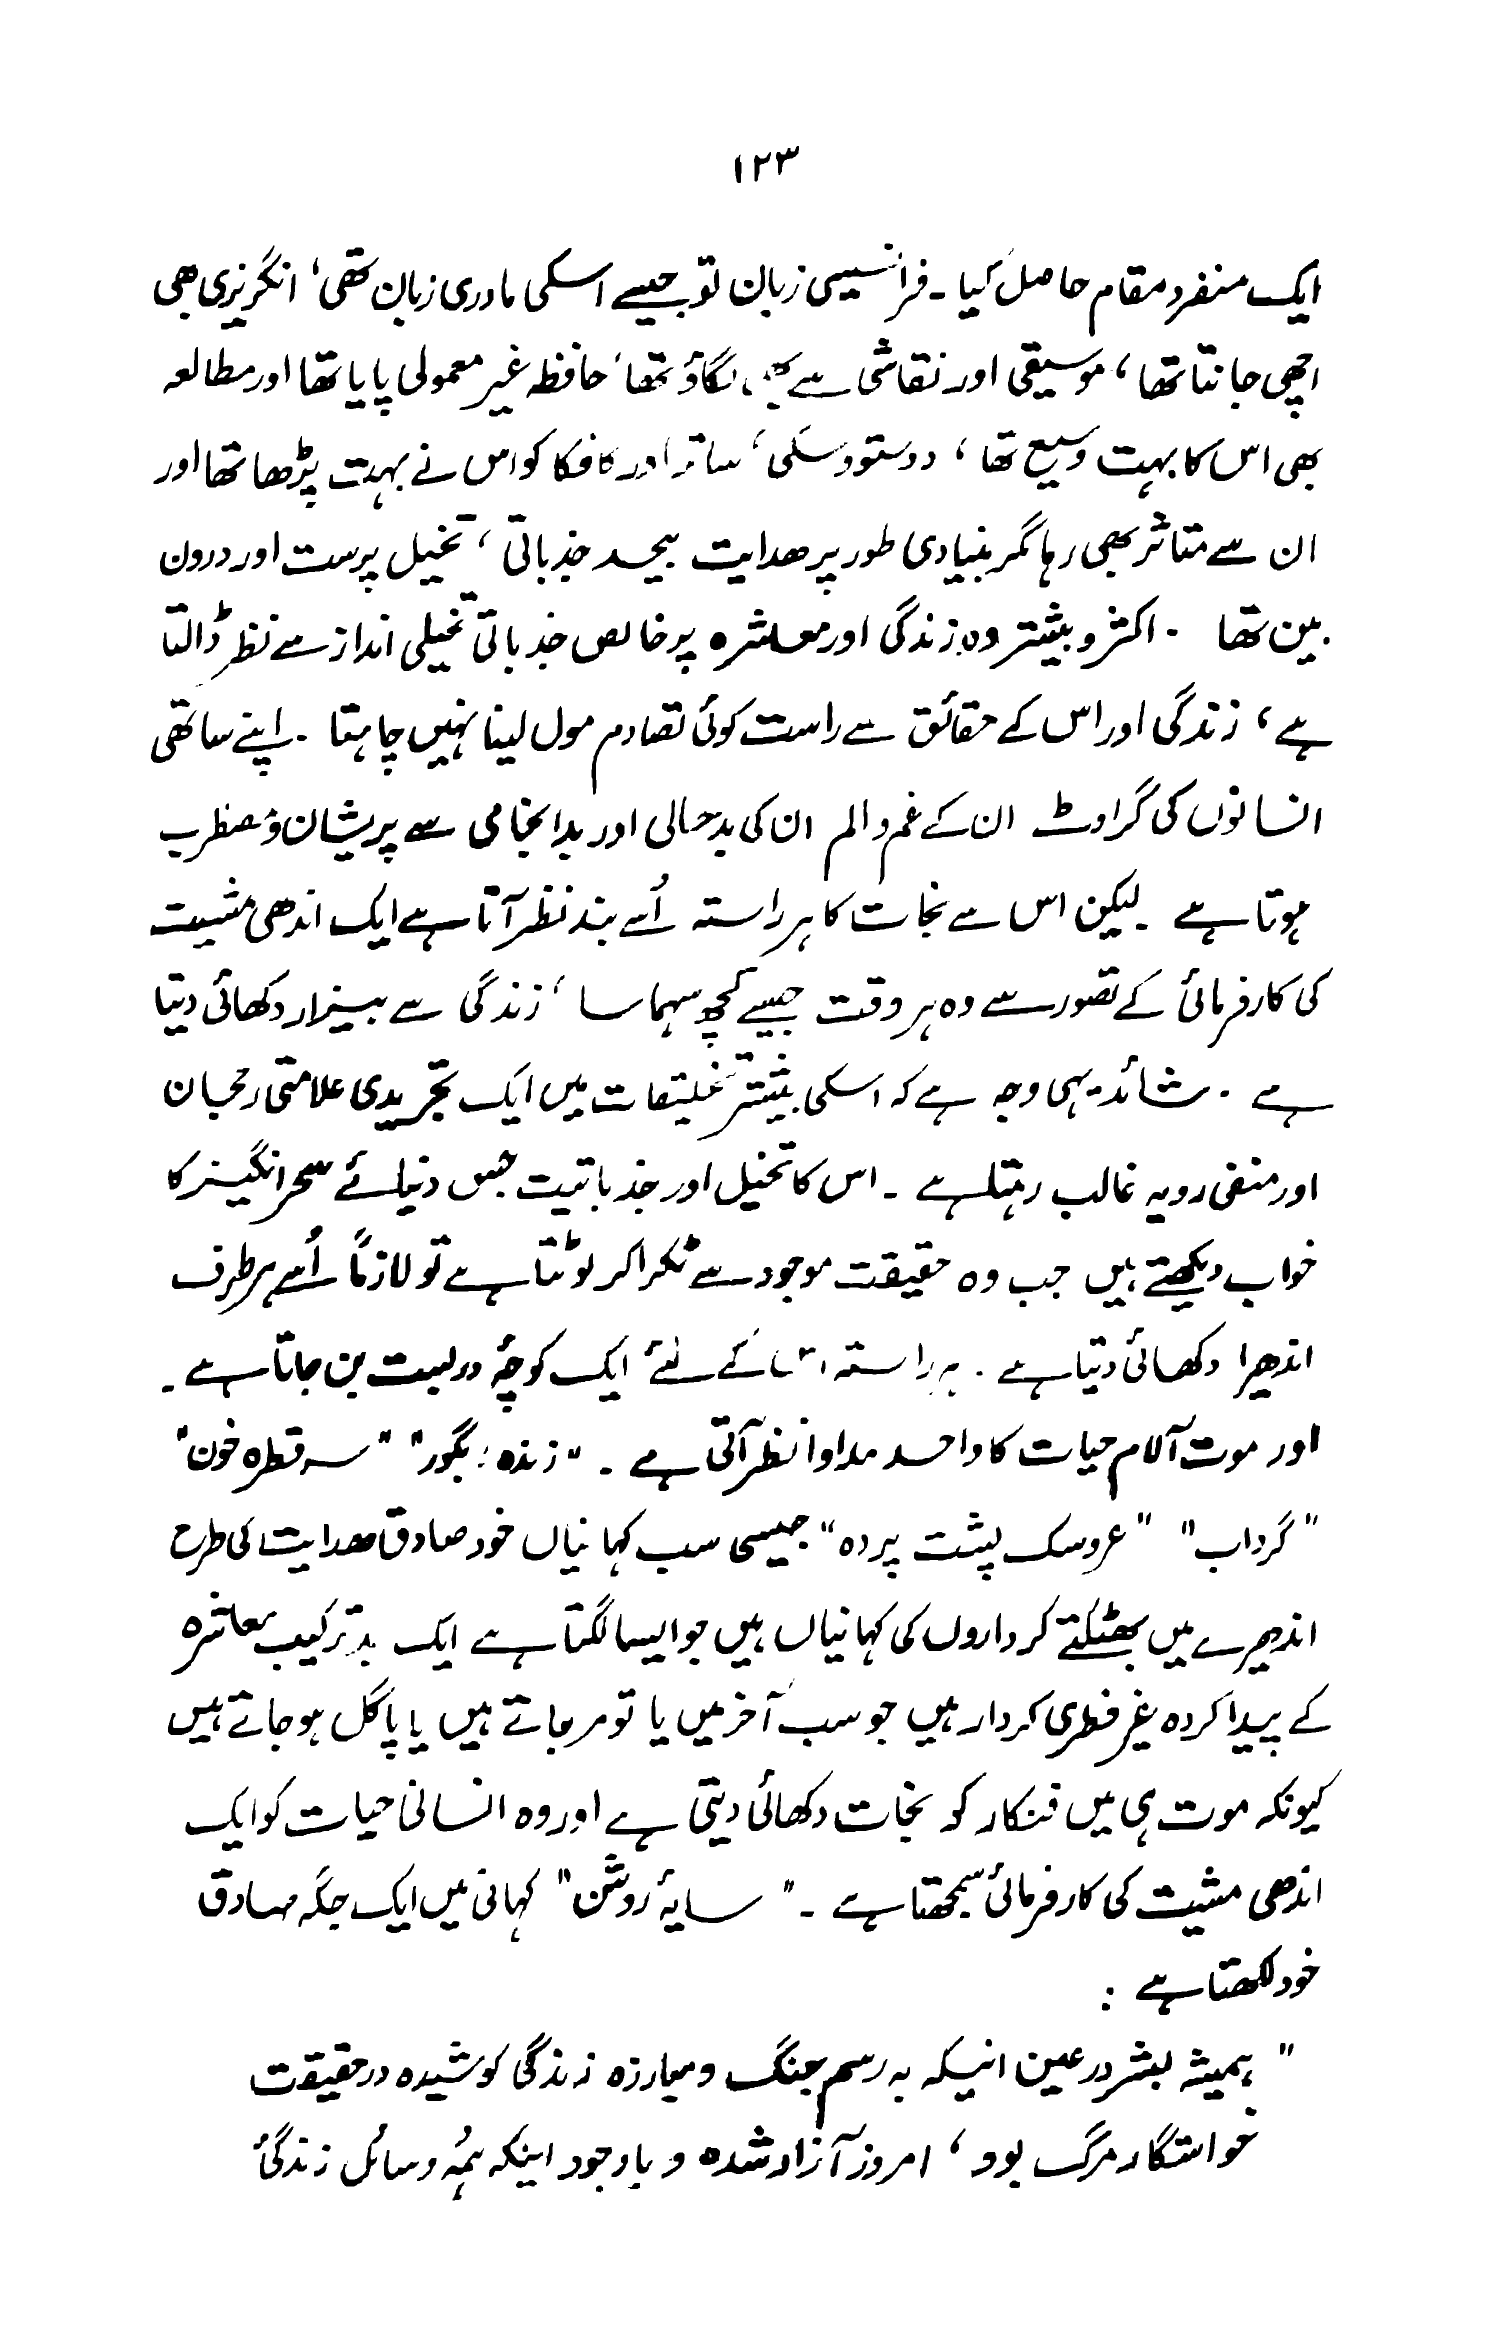 ۱۲۳
ایک منفرد مقام حاصل کیا ۔ فرانسیسی زبان تو جیسے اسکی مادری زبان تھی، انگریزی بھی
اچھی جانتا تھا، موسیقی اور نقاشی سے بھی لگاؤ تھا، حافظہ غیر معمولی پایا تھا اور مطالعہ
بھی اس کا بہت وسیع تھا، دوستووسکی، ساتر اور کافکا کو اس نے بہت پڑھا تھا اور
ان سے متاثر بھی رہا مگر بنیادی طور پر ھدایت بیحد جذباتی، تخیل پرست اور درون
بین تھا ۔ اکثر و بیشتر وہ زندگی اور معاشرہ پر خالص جذباتی تخیلی انداز سے نظر ڈالتا
ہے، زندگی اور اس کے حقائق سے راست کوئی تصادم مول لینا نہیں چاہتا ۔ اپنے ساتھی
انسانوں کی گراوٹ ان کے غم و الم ان کی بدحالی اور بدانجامی سے پریشان و مضطرب
ہوتا ہے لیکن اس سے نجات کا ہر راستہ اُسے بند نظر آتا ہے ایک اندھی مشیت
کی کارفرمائی کے تصور سے وہ ہر وقت جیسے کچھ سہما سا، زندگی سے بیزار دکھائی دیتا
ہے ۔ شائد یہی وجہ ہے کہ اسکی بیشتر تخلیقات میں ایک تجریدی علامتی رحجان
اور منفی رویہ غالب رہتا ہے ۔ اس کا تخیل اور جذباتیت جس دنیائے سحر انگیز کا
خواب دیکھتے ہیں جب وہ حقیقت موجود سے ٹکرا کر لوٹتا ہے تو لازماً اُسے ہر طرف
اندھیرا دکھائی دیتا ہے ۔ ہر راستہ اس کے لئے ایک کوچۂ در بست بن جاتا ہے ۔
اور موت آلام حیات کا واحد مداوا نظر آتی ہے ۔ "زندہ بگور" "سہ قطرہ خون"
"گرداب" "عروسک پشت پردہ" جیسی سب کہانیاں خود صادق ھدایت کی طرح
اندھیرے میں بھٹکتے کرداروں کی کہانیاں ہیں جو ایسا لگتا ہے ایک بدترکیب معاشرہ
کے پیدا کردہ غیر فطری کردار ہیں جو سب آخر میں یا تو مر جاتے ہیں یا پاگل ہو جاتے ہیں
کیونکہ موت ہی میں فنکار کو نجات دکھائی دیتی ہے اور وہ انسانی حیات کو ایک
اندھی مشیت کی کارفرمائی سمجھتا ہے ۔ "سایۂ روشن" کہانی میں ایک جگہ صادق
خود لکھتا ہے :
"ہمیشہ بشر در عین اینکہ بہ رسم جنگ و مبارزہ زندگی کوشیدہ در حقیقت
خواستگار مرگ بود، امروز آزاد شدہ و باوجود اینکہ ہمہ وسائل زندگی